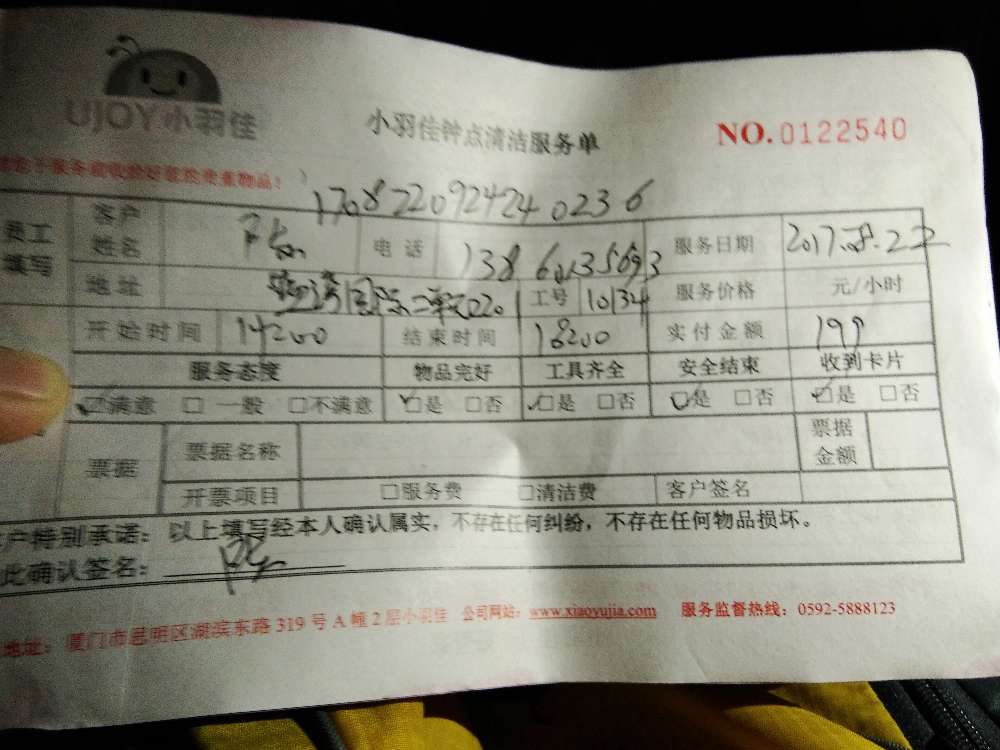 UJOY小羽佳
小羽佳钟点清洁服务单
NO.0122540
170822092424 0236
员工填写
客户姓名 电话 服务日期
地址 工号 10134 服务价格 元/小时
开始时间 14:00 结束时间 18:00 实付金额 199
服务态度 物品完好 工具齐全 安全结束 收到卡片
☑满意 □一般 □不满意 ☑是 □否 ☑是 □否 ☑是 □否 ☑是 □否
票据 票据名称 票据金额
开票项目 □服务费 □清洁费 客户签名
客户特别承诺：以上填写经本人确认属实，不存在任何纠纷，不存在任何物品损坏。
此确认签名：
地址：厦门市思明区湖滨东路 319 号 A 幢 2 层小羽佳 公司网站：www.xiaoyujia.com 服务监督热线：0592-5888123